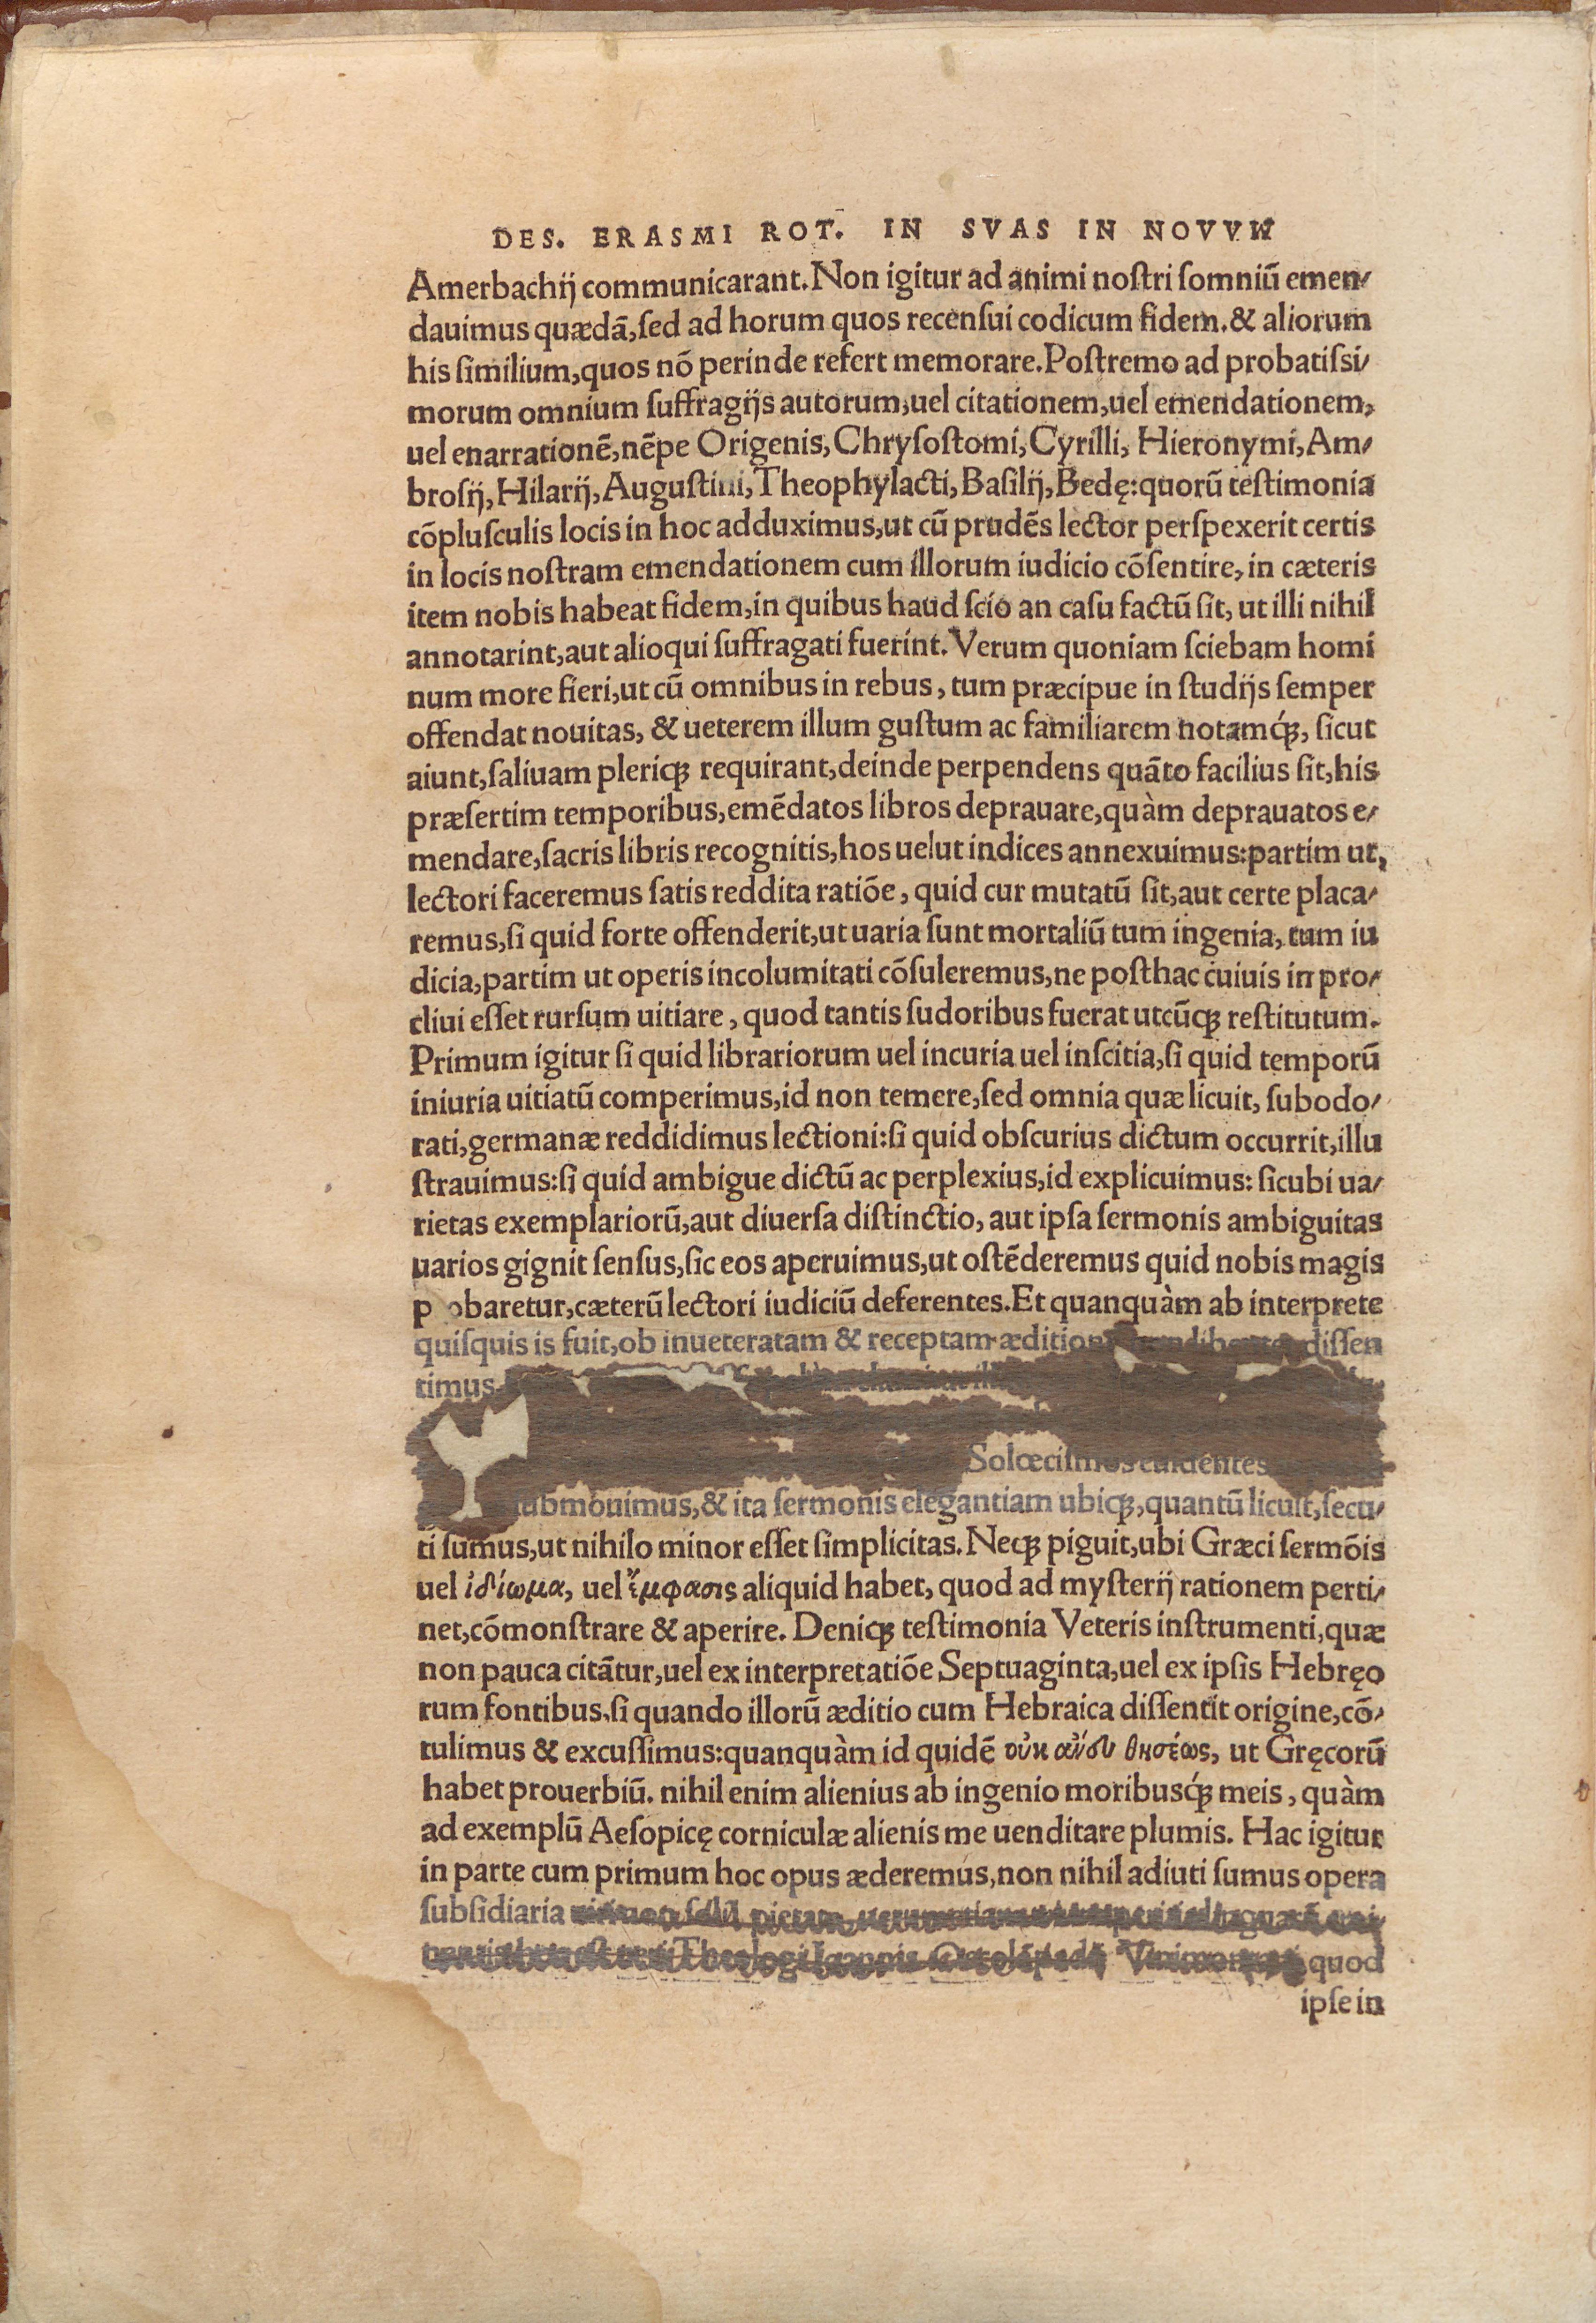 DES. ERASMI ROT. IN SVAS IN NOVVM
Amerbachij communicarant. Non igitur ad animi nostri somniũ emen/
dauimus quædã, sed ad horum quos recensui codicum fidem. & aliorum
his similium, quos nõ perinde refert memorare. Postremo ad probatissi/
morum omnium suffragijs autorum, uel citationem, uel emendationem,
uel enarrationẽ, nẽpe Origenis, Chrysostomi, Cyrilli, Hieronymi, Am/
brosij, Hilarij, Augustini, Theophylacti, Basilij, Bedę: quorũ testimonia
cõplusculis locis in hoc adduximus, ut cũ prudẽs lector perspexerit certis
in locis nostram emendationem cum illorum iudicio cõsentire, in cæteris
item nobis habeat fidem, in quibus haud scio an casu factũ sit, ut illi nihil
annotarint, aut alioqui suffragati fuerint. Verum quoniam sciebam homi
num more fieri, ut cũ omnibus in rebus, tum præcipue in studijs semper
offendat nouitas, & ueterem illum gustum ac familiarem notamq́ꝫ, sicut
aiunt, saliuam pleriqꝫ requirant, deinde perpendens quãto facilius sit, his
præsertim temporibus, emẽdatos libros deprauare, quàm deprauatos e/
mendare, sacris libris recognitis, hos uelut indices annexuimus: partim ut,
lectori faceremus satis reddita ratiõe, quid cur mutatũ sit, aut certe placa/
remus, si quid forte offenderit, ut uaria sunt mortaliũ tum ingenia, tum iu
dicia, partim ut operis incolumitati cõsuleremus, ne posthac cuiuis in pro/
cliui esset rursum uitiare, quod tantis sudoribus fuerat utcũqꝫ restitutum.
Primum igitur si quid librariorum uel incuria uel inscitia, si quid temporũ
iniuria uitiatũ comperimus, id non temere, sed omnia quæ licuit, subodo/
rati, germanæ reddidimus lectioni: si quid obscurius dictum occurrit, illu
strauimus: si quid ambigue dictũ ac perplexius, id explicuimus: sicubi ua/
rietas exemplariorũ, aut diuersa distinctio, aut ipsa sermonis ambiguitas
uarios gignit sensus, sic eos aperuimus, ut ostẽderemus quid nobis magis
p obaretur, cæterũ lectori iudiciũ deferentes. Et quanquàm ab interprete
quisquis is fuit, ob inueteratam & receptam æditionem dissen
timus
Solœcismos euidentes
submouimus, & ita sermonis elegantiam ubiqꝫ, quantũ licuit, secu/
ti sumus, ut nihilo minor esset simplicitas. Neqꝫ piguit, ubi Græci sermõis
uel ἰδίωμα, uel ἔμφασις aliquid habet, quod ad mysterij rationem perti/
net, cõmonstrare & aperire. Deniqꝫ testimonia Veteris instrumenti, quæ
non pauca citãtur, uel ex interpretatiõe Septuaginta, uel ex ipsis Hebręo
rum fontibus, si quando illorũ æditio cum Hebraica dissentit origine, cõ/
tulimus & excussimus: quanquàm id quidẽ οὐκ ἄνευ θησέως, ut Gręcorũ
habet prouerbiũ. nihil enim alienius ab ingenio moribusq́ꝫ meis, quàm
ad exemplũ Aesopicę corniculæ alienis me uenditare plumis. Hac igitur
in parte cum primum hoc opus æderemus, non nihil adiuti sumus opera
subsidiaria
Theologi quod
ipse in